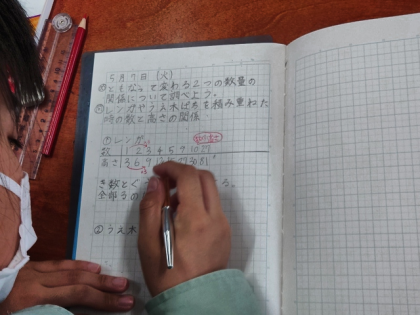 5月7日(火)
めともなって変わる2つの数量の
関係について調べよう。
レンガやうえ木ばちを積み重ねた
時の数と高さの関係
①レンガ
数 1 2 3 4 5 9 10 27
高さ 3 6 9 12 15 27 30 81
き数と
全部3の
②うえ木